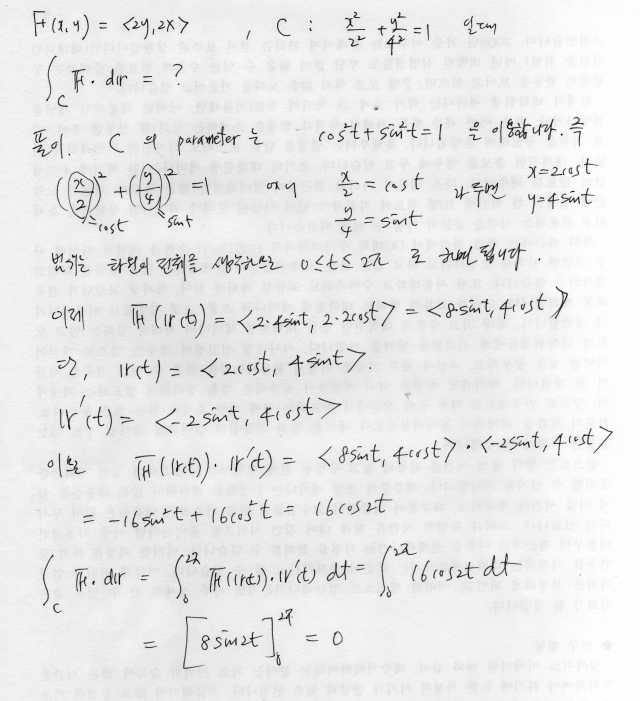 F(x,y) = <2y, 2x> , C : x²/2² + y²/4² = 1 일 때
∫_C F·dr = ?
풀이. C 의 parameter 는 cos²t + sin²t = 1 을 이용합니다. 즉
(x/2)² + (y/4)² = 1 에서 x/2 = cost 라 두면 x = 2cost
=cost =sint y/4 = sint y = 4sint
범위는 타원의 전체를 생각하므로 0 ≤ t ≤ 2π 로 하면 됩니다.
이제 F(r(t)) = <2·4sint, 2·2cost> = <8sint, 4cost>
또, r(t) = <2cost, 4sint>.
r'(t) = <-2sint, 4cost>
이므로 F(r(t))·r'(t) = <8sint, 4cost>·<-2sint, 4cost>
= -16sin²t + 16cos²t = 16cos2t
∫_C F·dr = ∫_0^{2π} F(r(t))·r'(t) dt = ∫_0^{2π} 16cos2t dt
= [8sin2t]_0^{2π} = 0